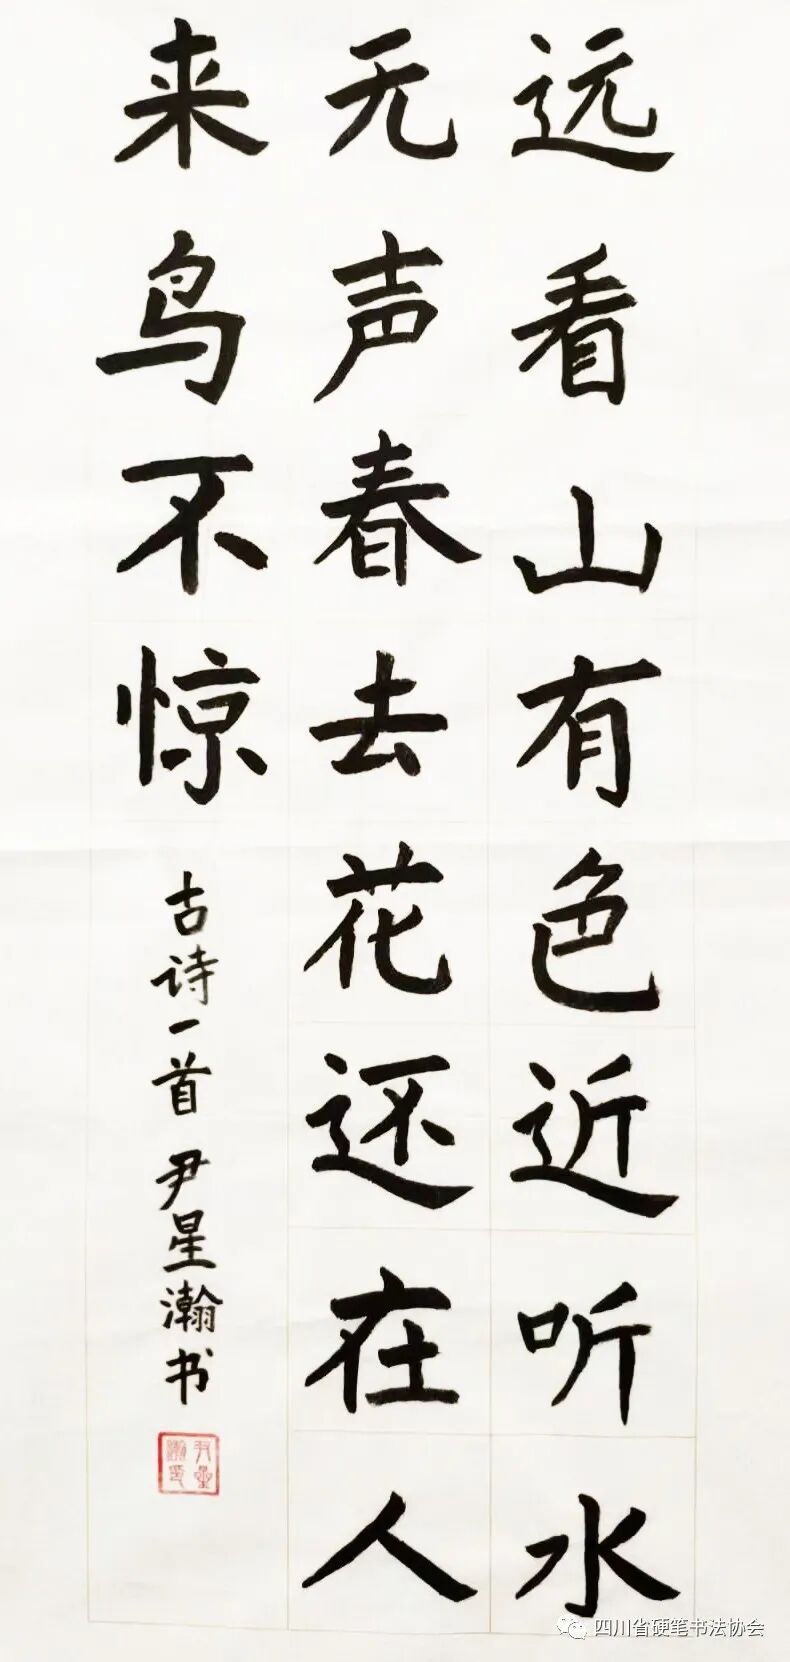 远看山有色近听水
无声春去花还在人
来鸟不惊
古诗一首 尹星瀚书
尹星瀚印
四川省硬笔书法协会